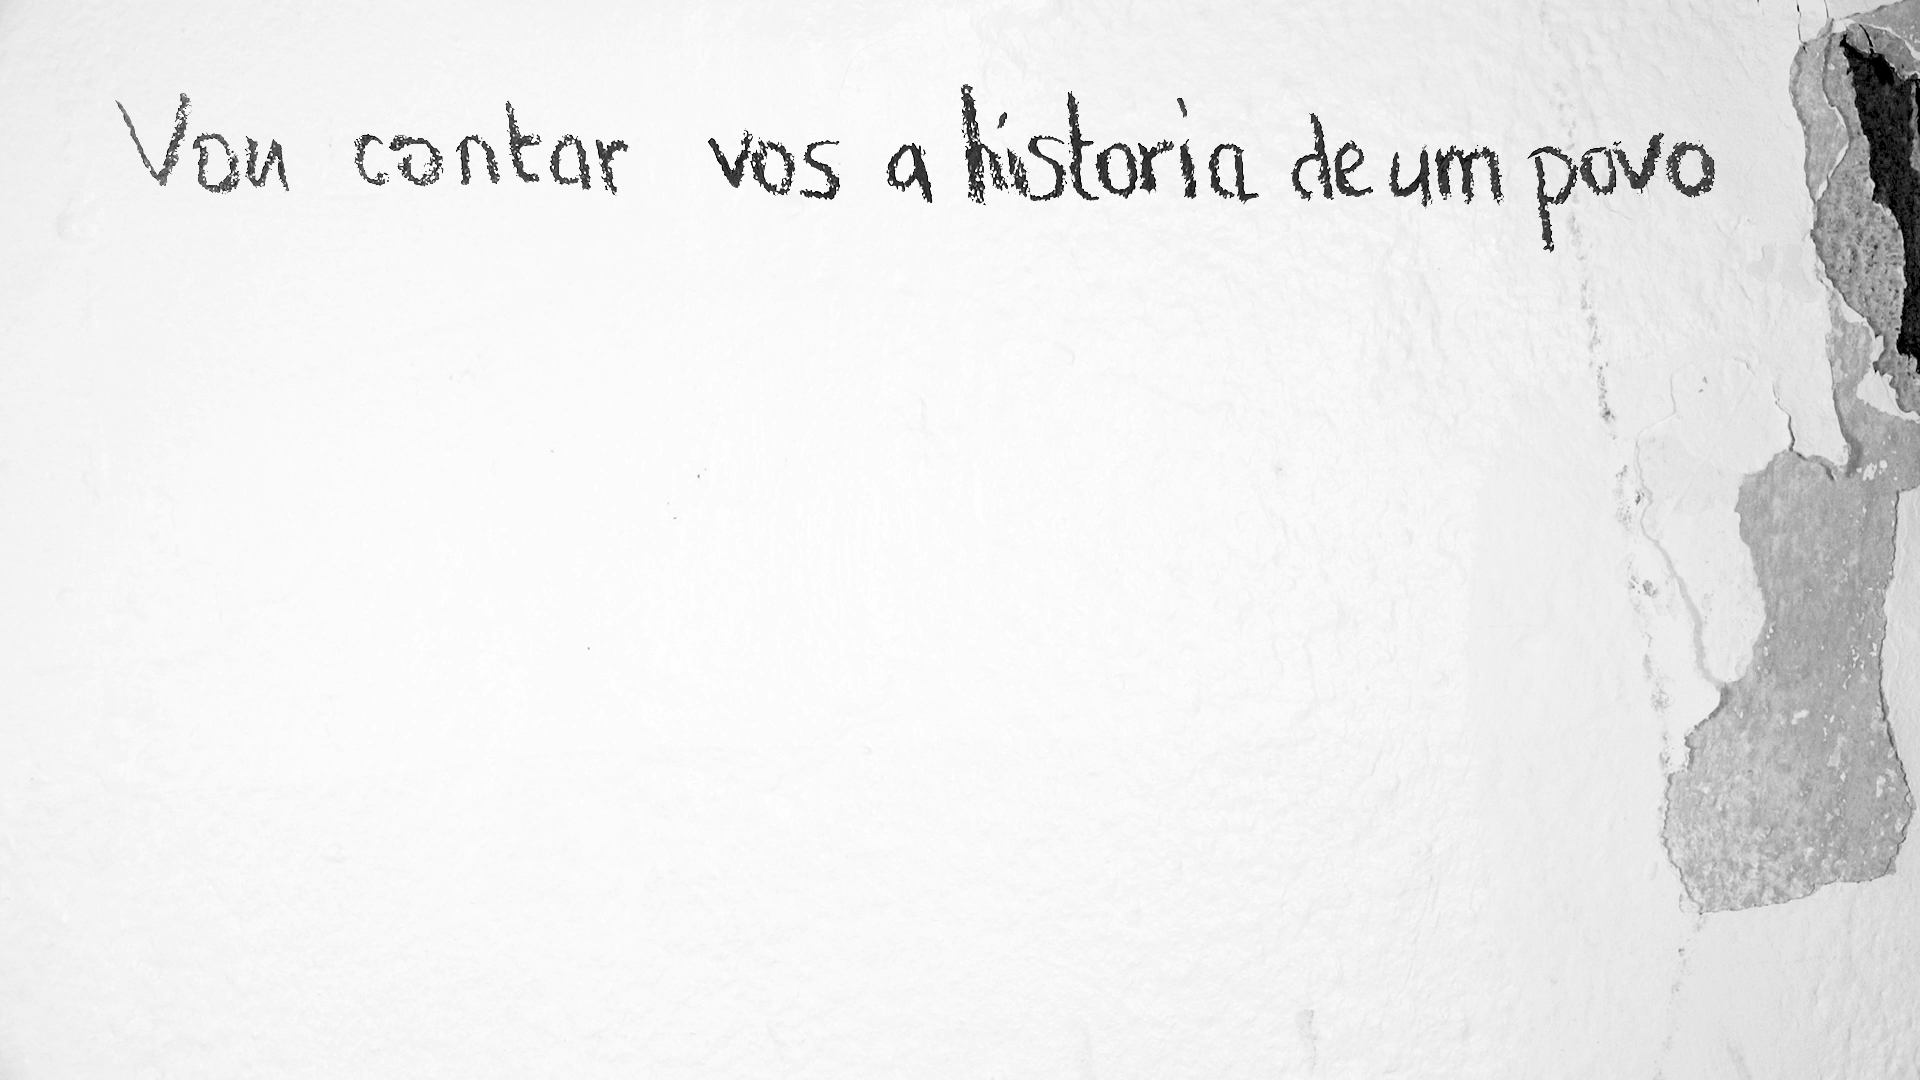 Vou contar vos a historia de um povo